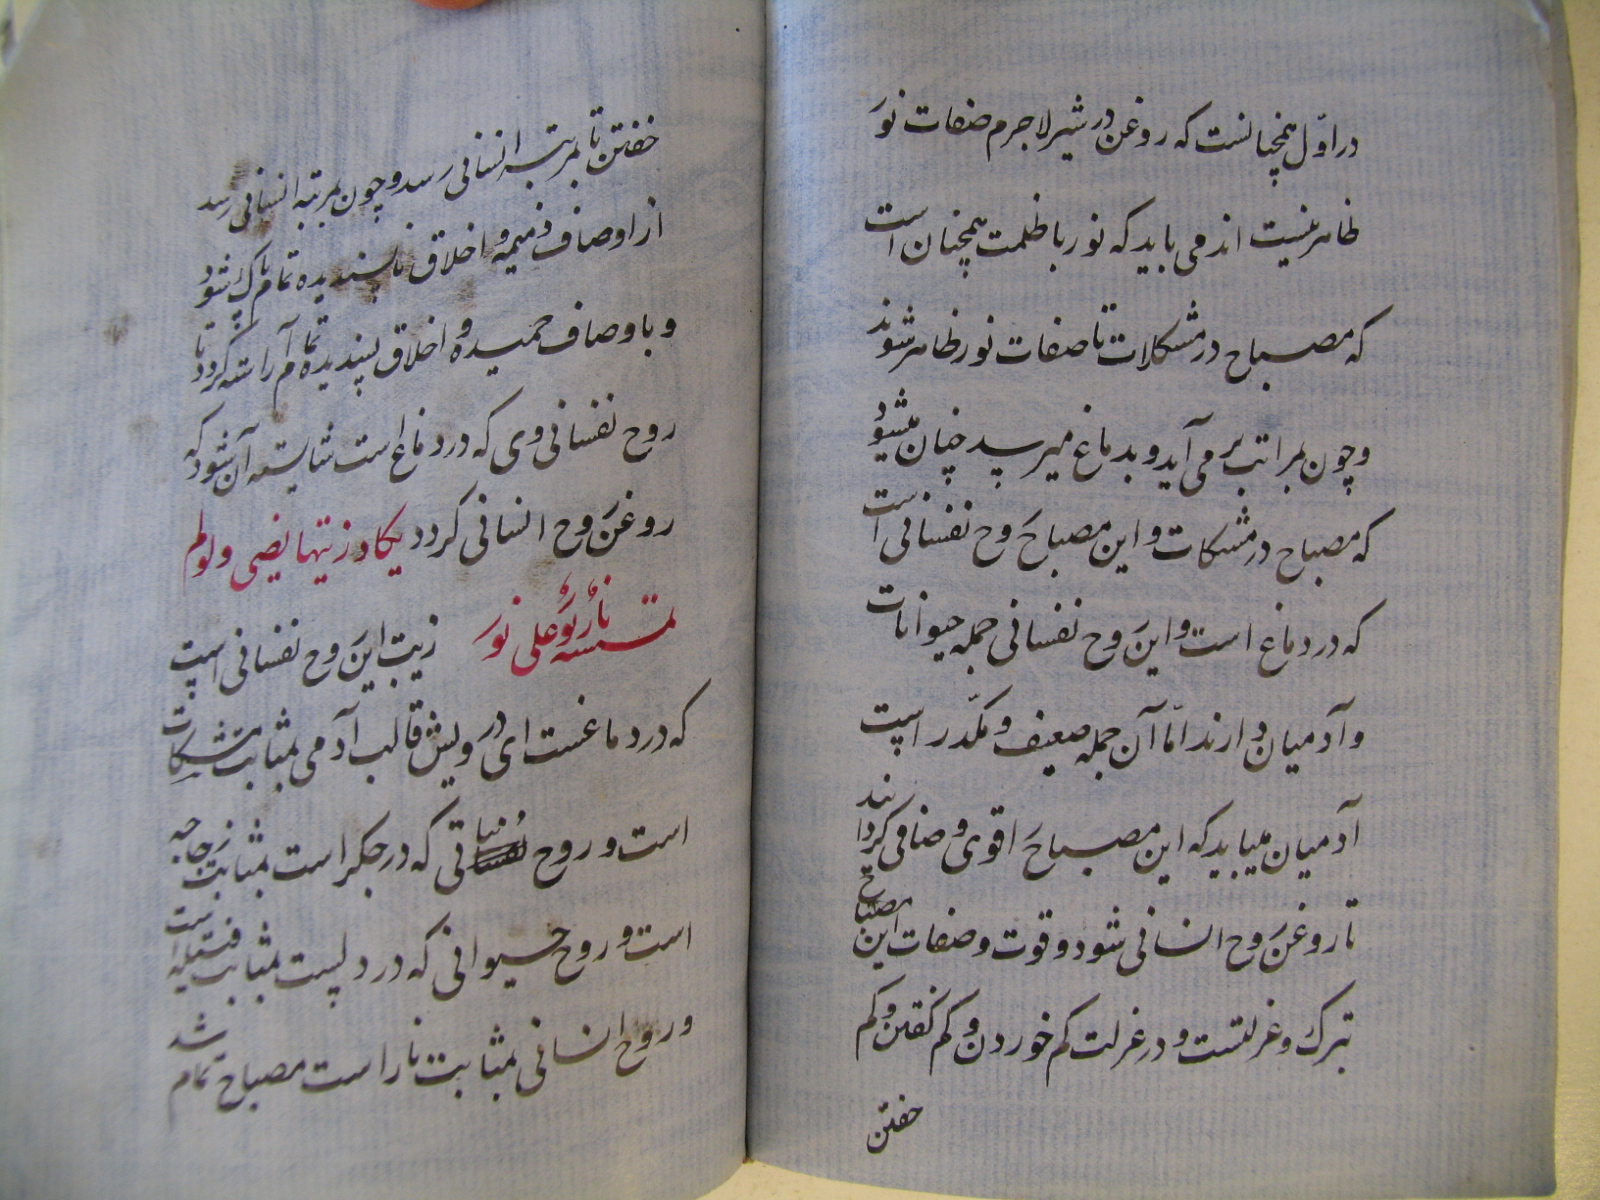 در اوّل همچنانست که روغن در شیر لاجرم صفات نور
ظاهر نیست اند می باید که نور با ظلمت همچنان است
که مصباح در مشکلات تا صفات نور ظاهر شوند
و چون بمراتب بر می آید و بدماغ میرسد چنان میشود
که مصباح در مشکات و این مصباح روح نفسانی است
که در دماغ است و این روح نفسانی جمله حیوانات
و آدمیان دارند امّا آن جمله ضعیف و مکدّر است
آدمیان میباید که این مصباح را قوی و صافی کردانند
تا روغن روح انسانی شود و قوت و صفات این مصباح
بترک و عزلتست و در عزلت کم خوردن و کم کفتن و کم
خفتن
خفتن تا بمرتبه انسانی رسد و چون بمرتبه انسانی رسد
از اوصاف ذمیمه و اخلاق ناپسندیده تمام پاک شود
و باوصاف حمیده و اخلاق پسندیده تمام آراسته کردد تا
روح نفسانی وی که در دماغ است شایسته آن شود که
روغن روح انسانی کردد یکاد زیتها یضی ولولم
تمسسه نارٌ نورٌ علی نور زیت این روح نفسانی است
که در دماغست ای درویش قالب آدمی بمثابت مشکات
است و روح نباتی که در جکر است بمثابت زجاجه
است و روح حیوانی که در دلست بمثابت فتیله است
و روح انسانی بمثابت نار است مصباح تمام شد